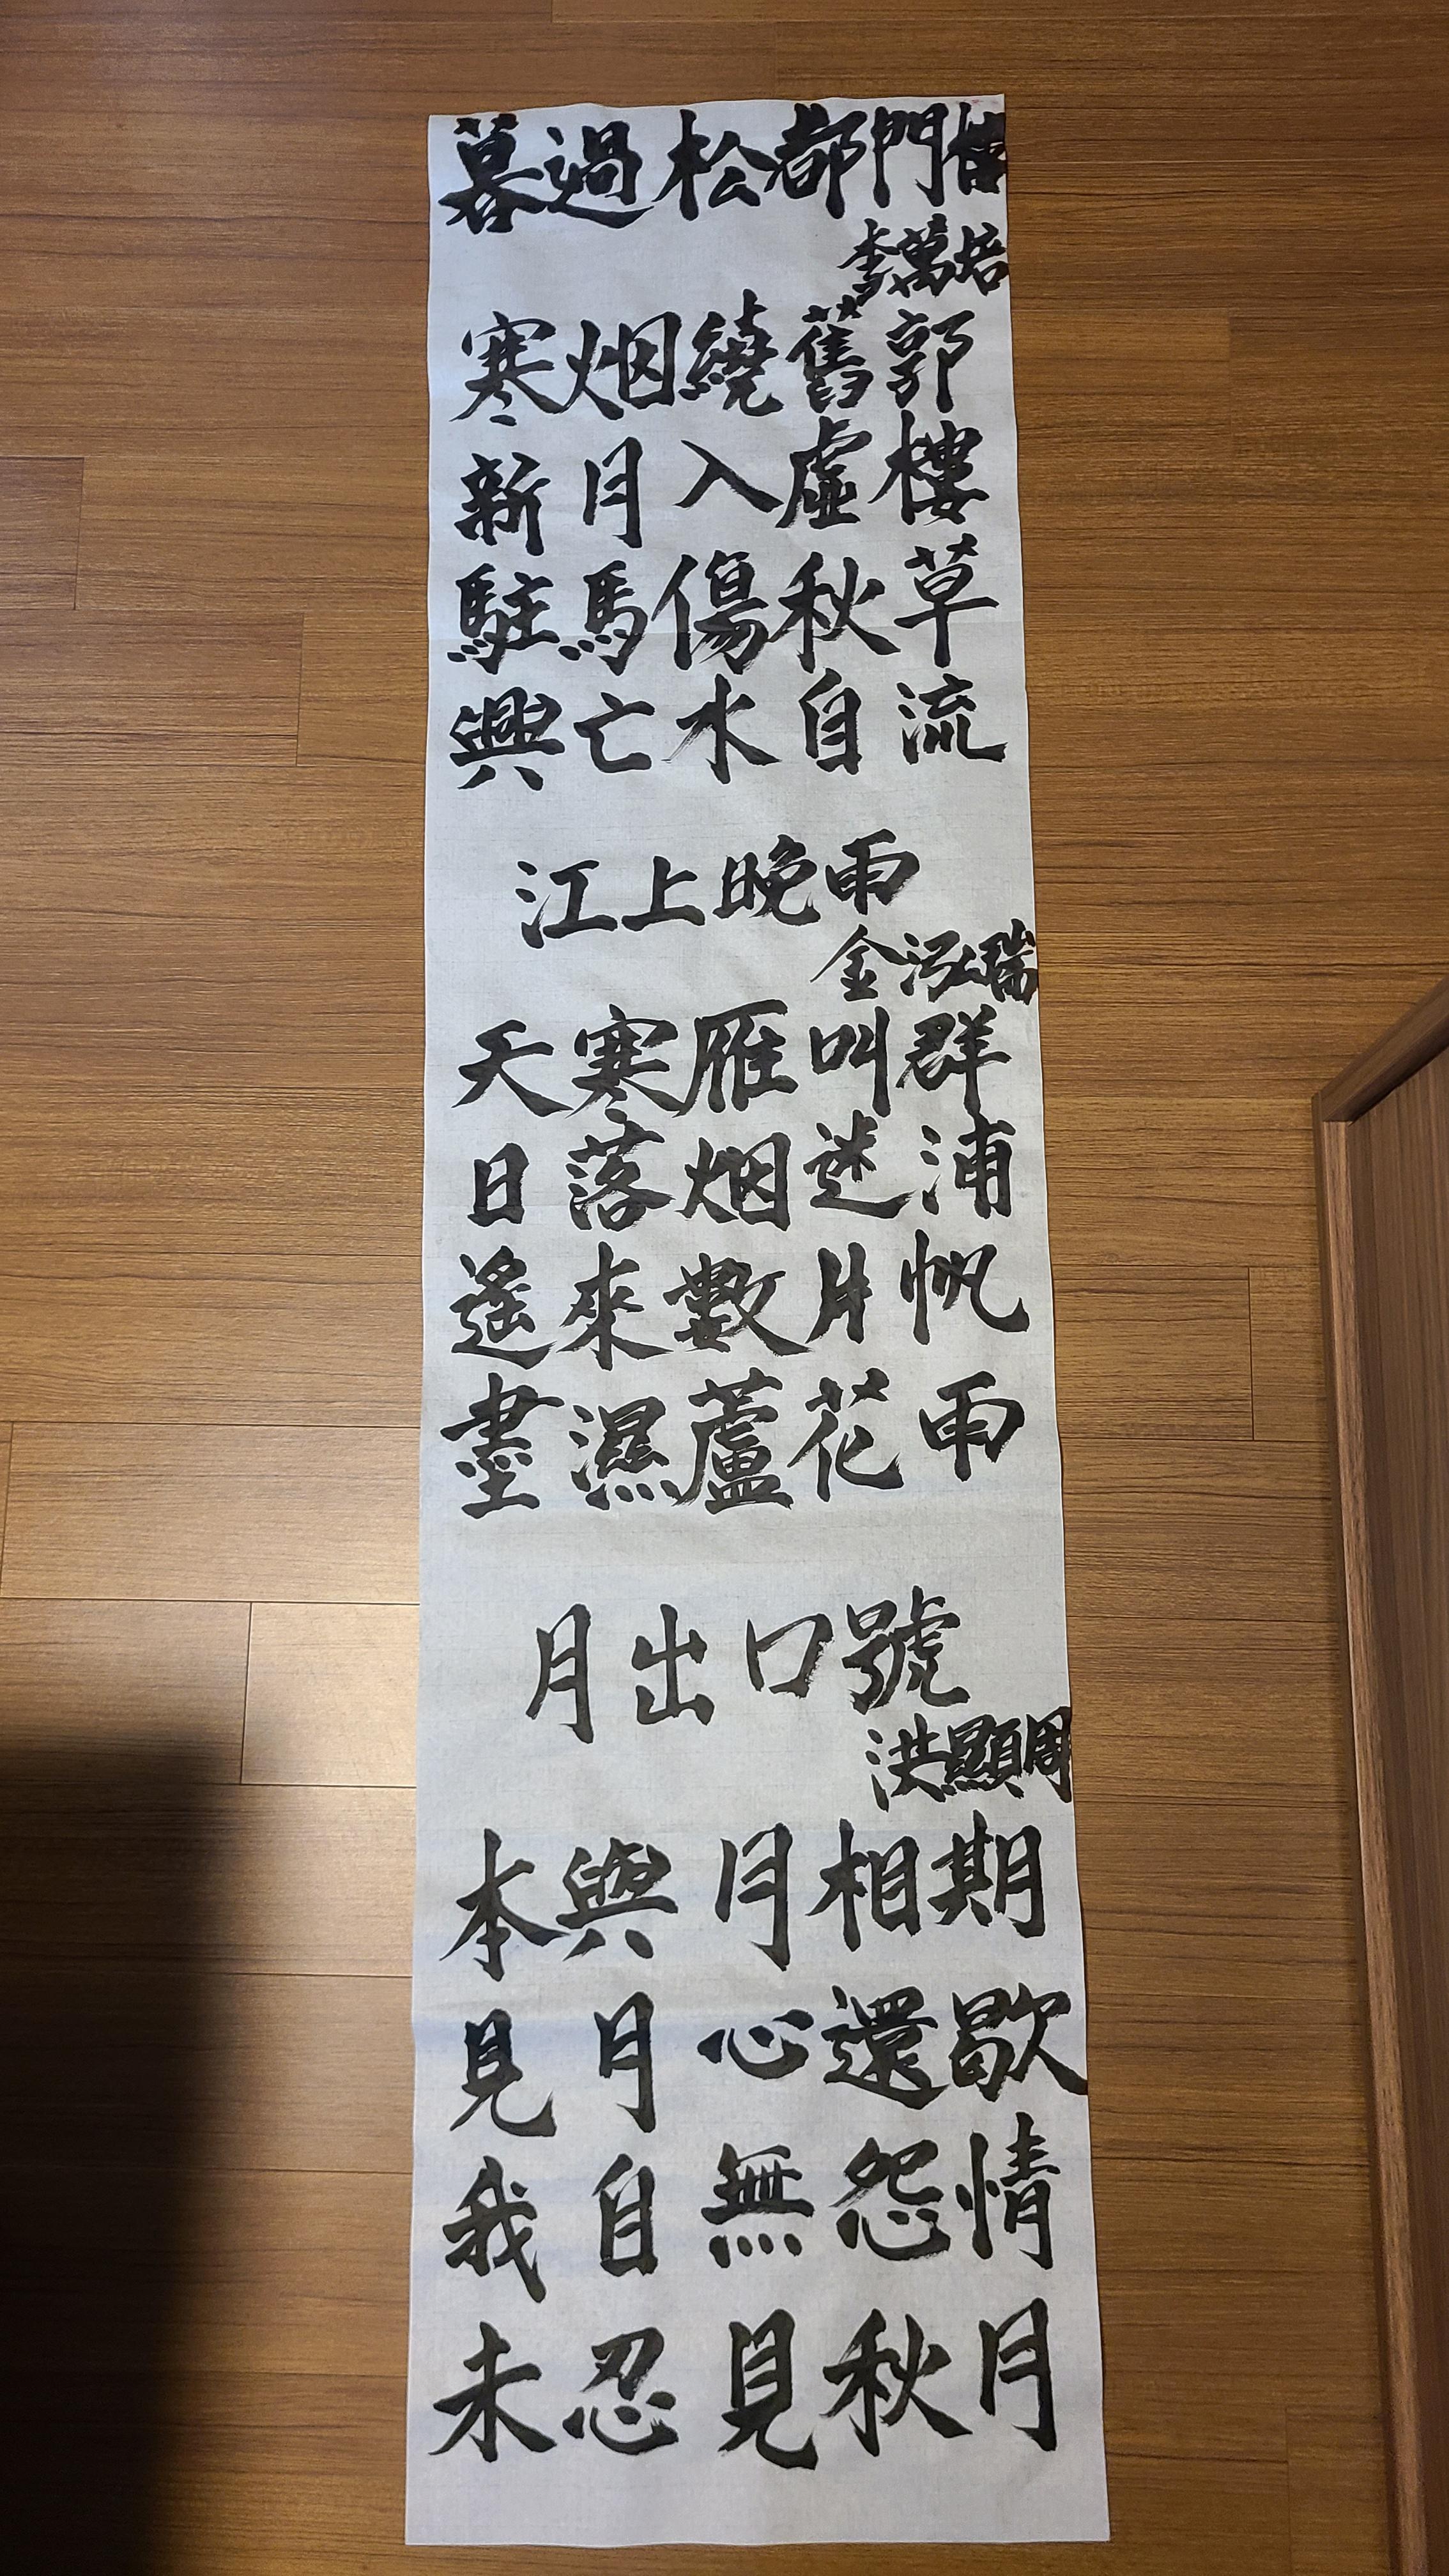 暮過松都門
李萬培
寒烟繞舊郭
新月入虛樓
駐馬傷秋草
興亡水自流
江上晚雨
金泓瑞
天寒雁叫群
日落烟迷浦
遙來數片帆
盡濕蘆花雨
月出口號
洪顯周
本與月相期
見月心還歇
我自無怨情
未忍見秋月